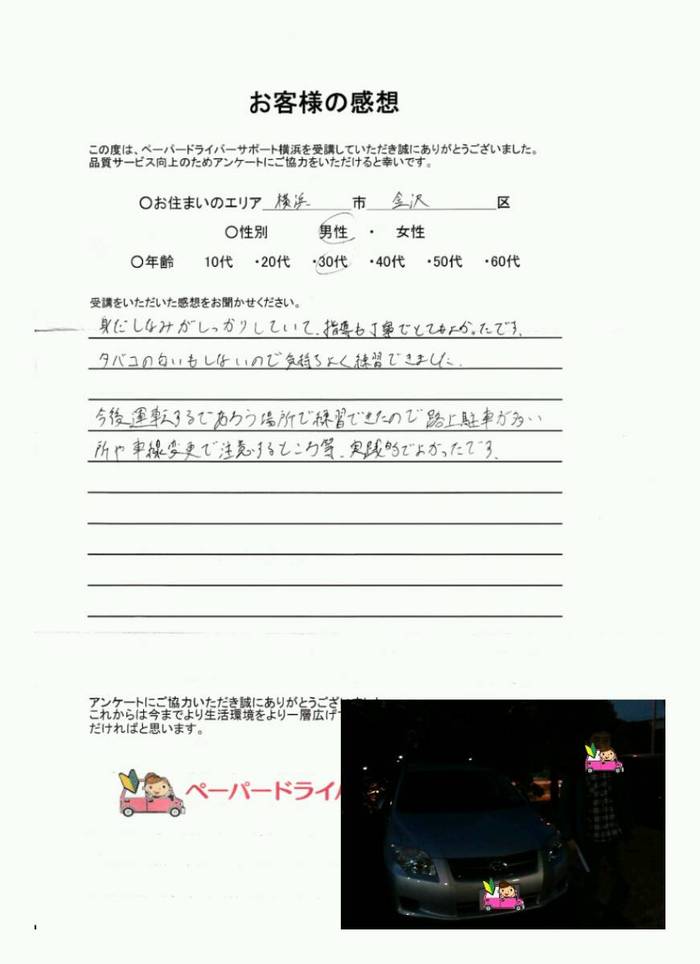 お客様の感想
この度は、ペーパードライバーサポート横浜を受講していただき誠にありがとうございました。
品質サービス向上のためアンケートにご協力をいただけると幸いです。
〇お住まいのエリア 横浜 市 金沢 区
〇性別 男性 ・ 女性
〇年齢 10代 ・20代 ・30代 ・40代 ・50代 ・60代
受講をいただいた感想をお聞かせください。
身だしなみがしっかりしていて、指導も丁寧でとてもよかったです。
タバコの匂いもしないので気持ちよく練習できました。
今後運転するであろう場所で練習できたので路上駐車が多い
所や車線変更で注意するところ等、実践的でよかったです。
アンケートにご協力いただき誠にありがとうござい
これからは今までより生活環境をより一層広げ
だければと思います。
ペーパードライバ